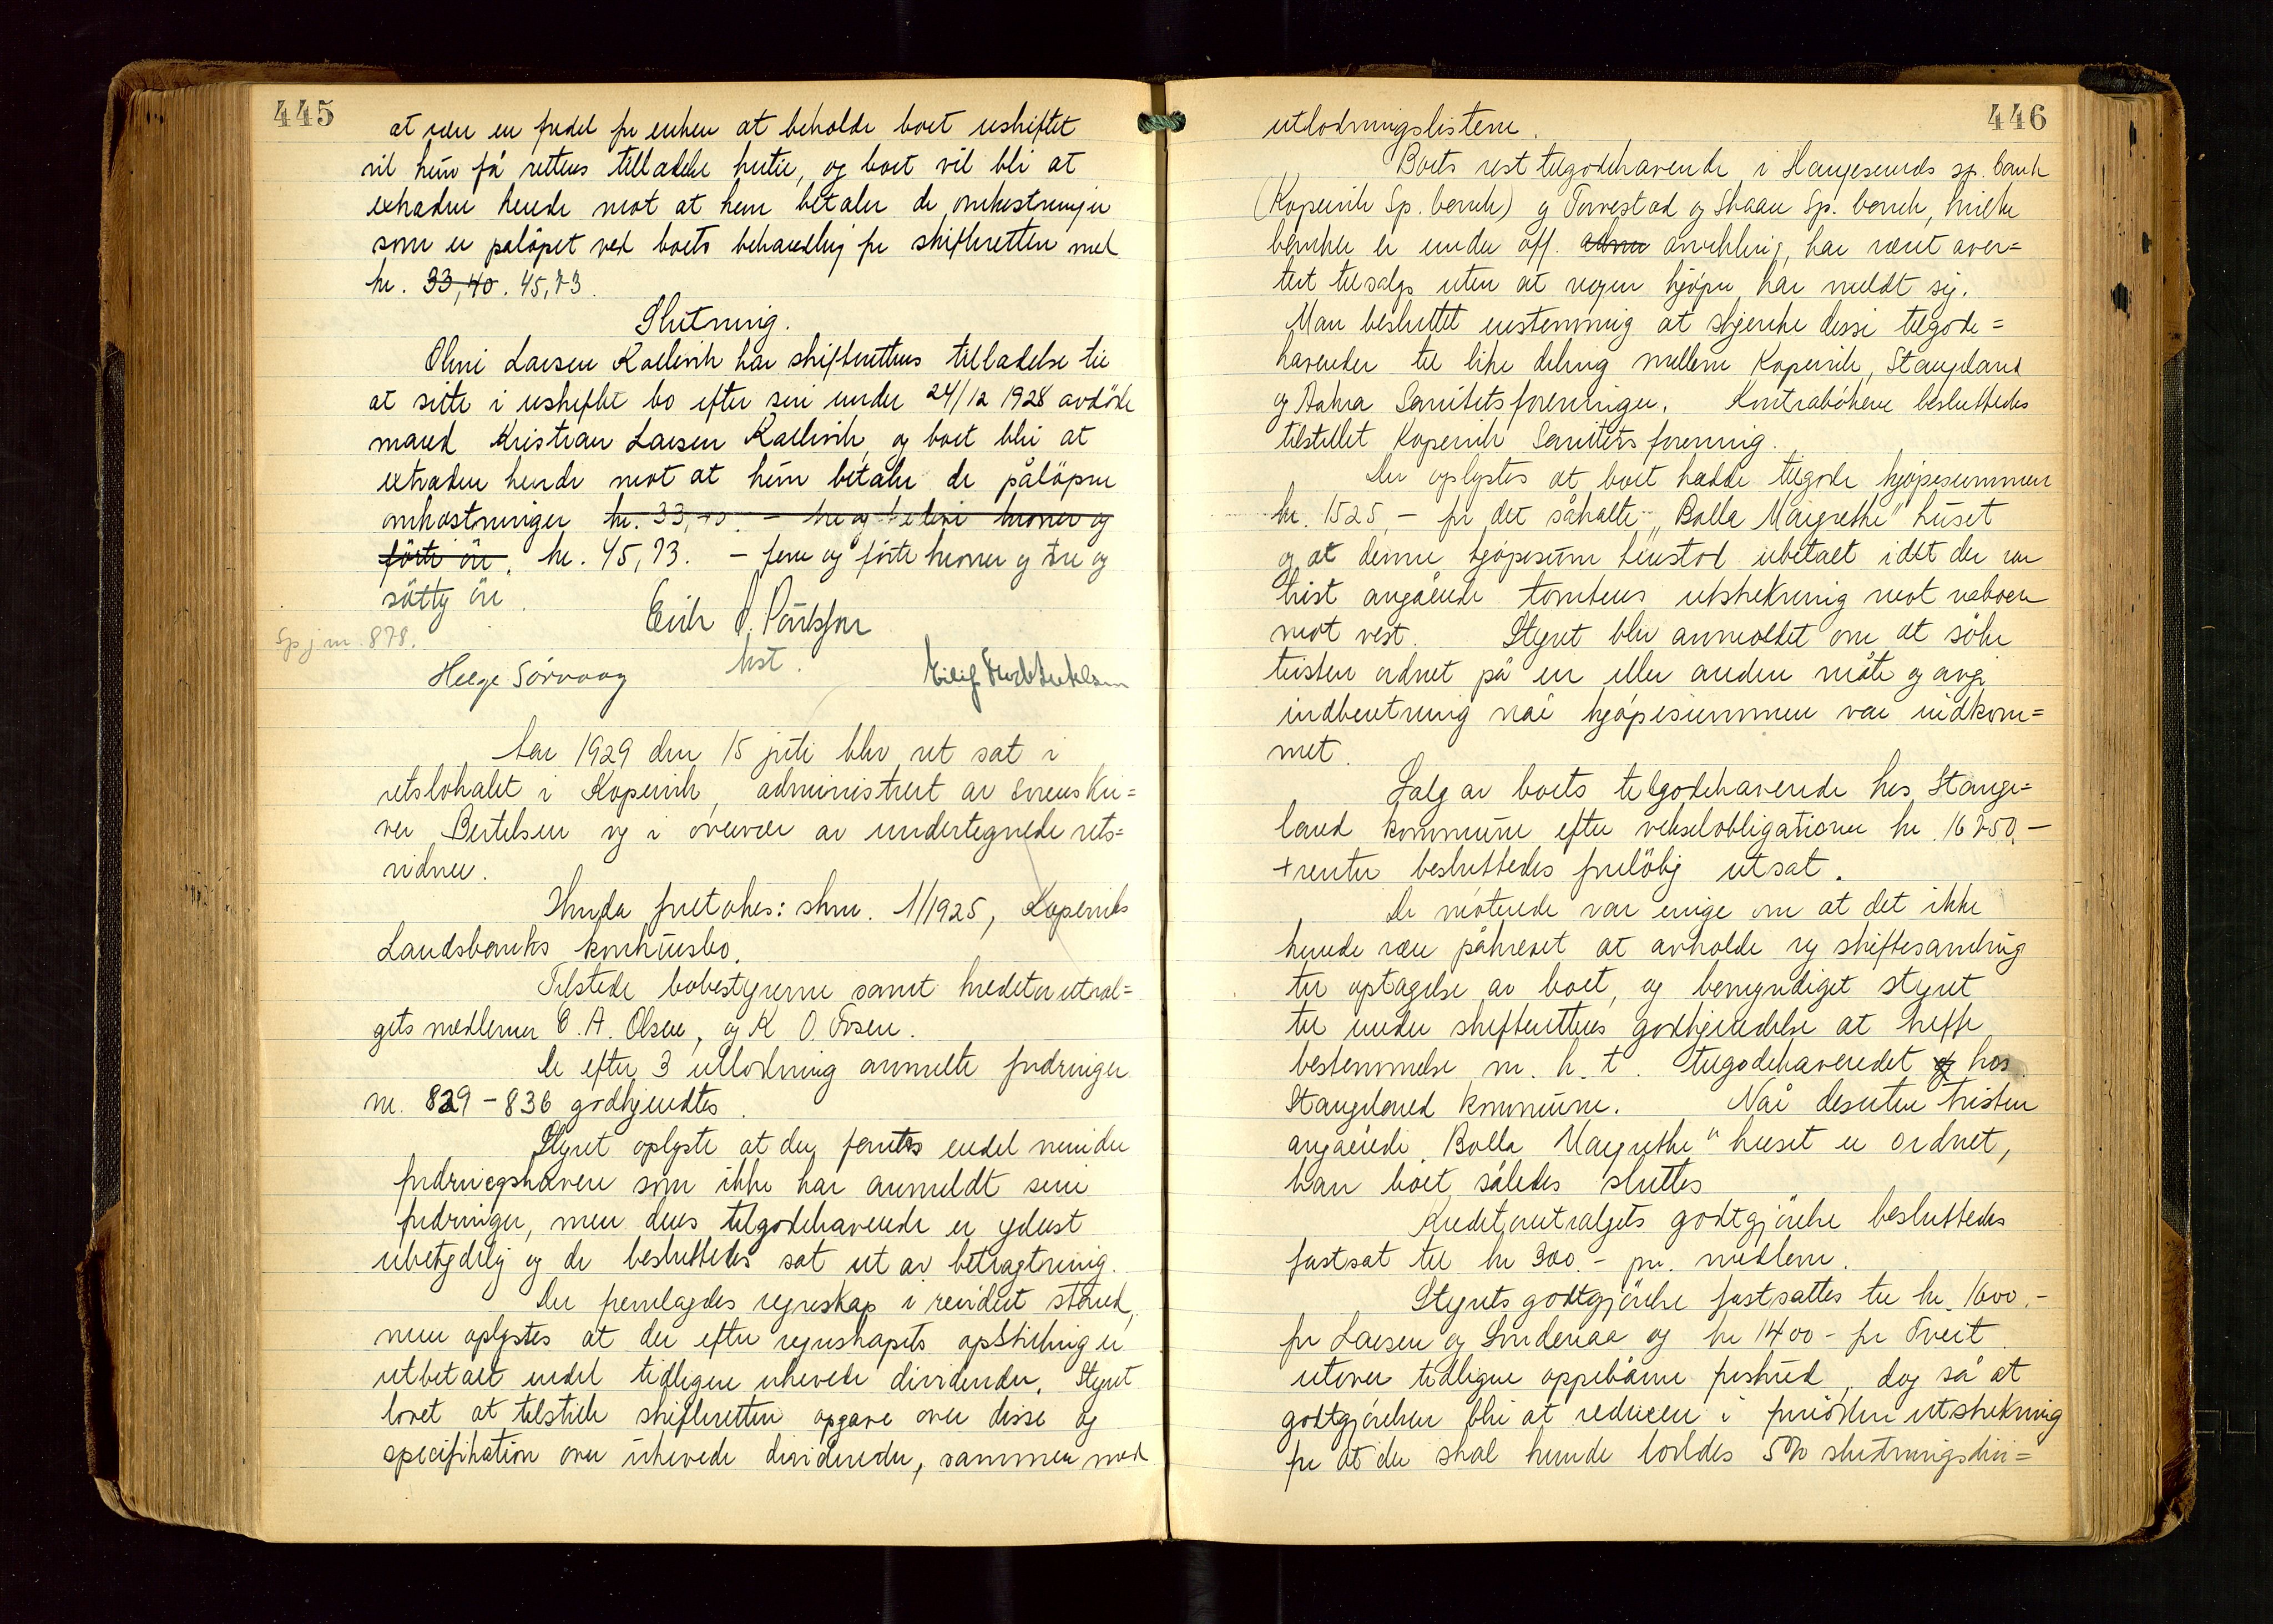 445
at være en fordel for enken at beholde boet uskiftet
vil hun få rettens tilladelse hertil, og boet vil bli at
extradere hende mot at hun betaler de omkostninger
som er påløpet ved boets behandling for skifteretten med
kr. 33,40. 45,73.
Slutning.
Oline Larsen Kallevik har skifterettens tilladelse til
at sitte i uskiftet bo efter sin under 24/12 1928 avdöde
mand Kristian Larsen Kallevik, og boet blir at
extradere hende mot at hun betaler de påløpne
omkostninger kr. 33,40. – tre og tretti kroner og
förti öre. kr. 45,73. – fem og förti kroner og tre og
sötty öre.
Erik P. Paulsson
kst.
Sp j nr. 878.
Helge Sörvaag
Eilif
Aar 1929 den 15 juli blev ret sat i
retslokalet i Kopervik, administrert av sorenskri=
ver Bertelsen og i overvær av undertegnede rets=
vidner.
Hvorda foretokes: skm. 1/1925, Koperviks
Landsbanks konkursbo.
Tilstede bobestyrerne samt kreditorutval=
gets medlemer E. A. Olsen, og K. O. Fosen.
De efter 3 utlodning anmeldte fordringer
nr. 829 – 836 godkjendtes.
Styret oplyste at der fantes endel mindre
fordringshavere som ikke har anmeldt sine
fordringer, men deres tilgodehavende er yderst
ubetydelig og de besluttedes sat ut av betragtning.
Der fremlagdes regnskap i revidert stand,
men oplystes at der efter regnskapets opstilling er
utbetalt endel tidligere uhevede dividender. Styret
lovet at tilstille skifteretten opgave over disse og
specifikation over uhevede dividender, sammen med
446
utlodningslistene.
Boets rest tilgodehavende i Haugesunds sp. bank
(Kopervik Sp. bank) og Torvestad og Skaare Sp. bank, hvilke
banker er under off. admi avvikling, har været aver=
tert tilsalgs uten at nogen kjøper har meldt sig.
Man besluttet enstemmig at skjenke disse tilgode=
havender til like deling mellem Kopervik, Stangeland
og Aakra Sanitetsforeninger. Kontrabökene besluttedes
tilstillet Kopervik Sanitetsforening.
Der oplystes at boet hadde tilgode kjøpesummen
kr. 1525,– for det såkalte "Bolla Margrethe" huset
og at denne kjøpesum henstod ubetalt idet der var
tvist angående tomtens utstrekning mot naboen
mot vest. Styret blev anmodet om at söke
tvisten ordnet på en eller anden måte og avgi
indberetning når kjøpesummen var indkom=
met.
Salg av boets tilgodehavende hos Stange=
land kommune efter vekselobligationer kr. 16750.–
+ renter besluttedes foreløbig utsat.
De møtende var enige om at det ikke
kunde være påkrevet at avholde ny skiftesamling
til optagelse av boet, og bemyndiget styret
til under skifterettens godkjendelse at treffe
bestemmelse m. h. t. tilgodehavendet af hos
Stangeland kommune. Når desuten tvisten
angående "Bolla Margrethe" huset er ordnet,
kan boet således sluttes
Kreditorutvalgets godtgjörelse besluttedes
fastsat til kr 300.– pr. medlem.
Styrets godtgjörelse fastsattes til kr. 1600.–
for Larsen og Lindenaa og kr 1400 – for Tveit
utover tidligere oppebårne forskud, dog så at
godtgjörelsen blir at reducere i fornöden utstrekning
for at der skal kunde lovldes 5% slutningsdivi=